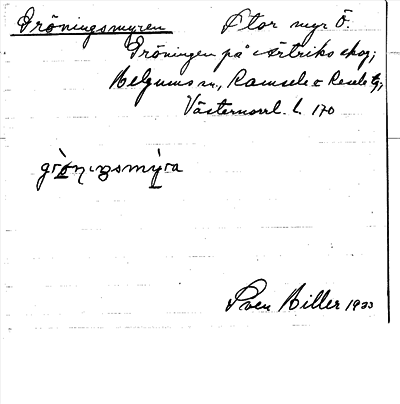 Gröningsmyren Stor myr Ö.
Gröningen på Ärtriks skog;
Helgums sn, Ramsele o Resele tg,
Västernorrl. l. 170
Sven Biller 1933